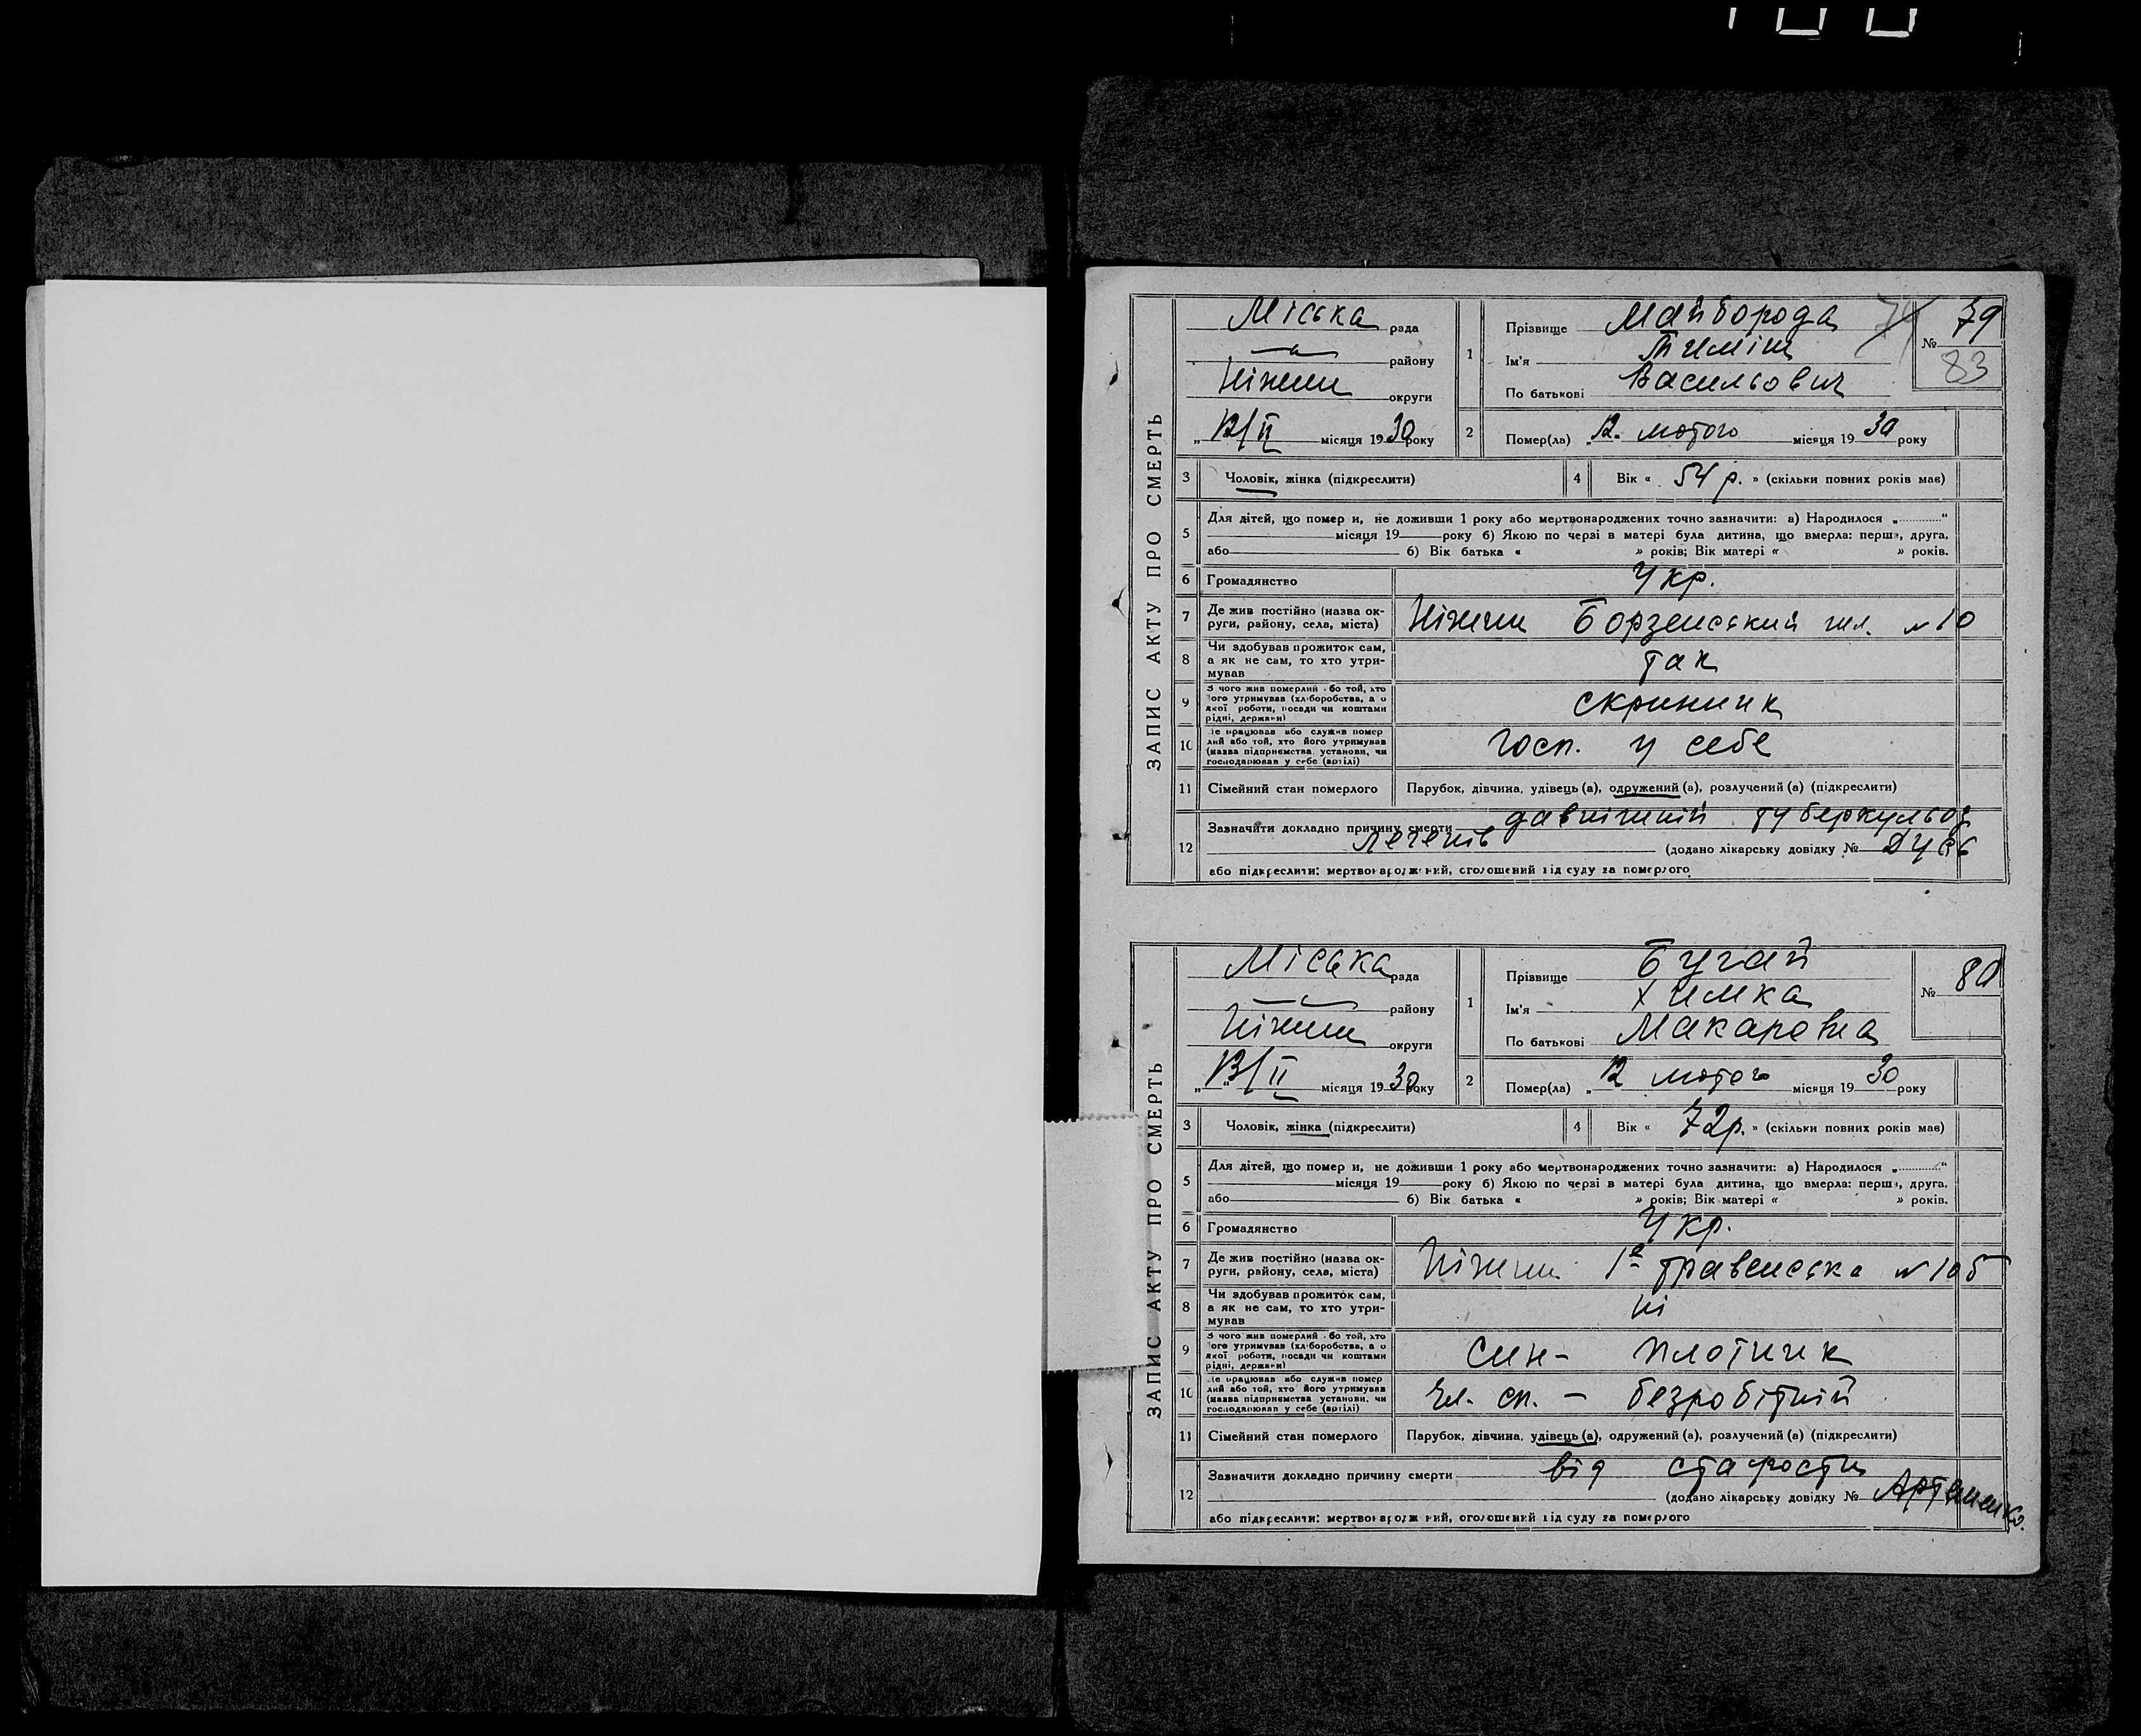 ЗАПИС АКТУ ПРО СМЕРТЬ
Міська рада
району
Ніжин округи
12/II місяця 1930 року
1 Прізвище Майборода
Ім'я Тиміш
По батькові Васильович
№ 79
83
2 Помер(ла) „ 12. лютого місяця 19 30 року
3 Чоловік, жінка (підкреслити)
4 Вік « 54 р. » (скільки повних років має)
5 Для дітей, що помер и, не доживши 1 року або мертвонароджених точно зазначити: а) Народилося „ “
місяця 19 року б) Якою по черзі в матері була дитина, що вмерла: перша, друга,
або б) Вік батька « » років; Вік матері « » років.
6 Громадянство Укр.
7 Де жив постійно (назва ок-
руги, району, села, міста) Ніжин Борзенський шл. № 10
8 Чи здобував прожиток сам,
а як не сам, то хто утри-
мував так
9 З чого жив померлий або той, хто
його утримував (хліборобства, а о
якої роботи, посади чи коштами
рідні, держави) скринник
10 Де працював або служив помер
лий або той, хто його утримував
(назва підприємства, установи, чи
господарював у себе (артілі) госп. у себе
11 Сімейний стан померлого Парубок, дівчина, удівець (а), одружений (а), розлучений (а) (підкреслити)
12 Зазначити докладно причину смерти давнішній туберкульоз
легенів (додано лікарську довідку №
або підкреслити: мертвонароджений, оголошений від суду за померлого
ЗАПИС АКТУ ПРО СМЕРТЬ
Міська рада
району
Ніжин округи
„ 13/II місяця 1930 року
1 Прізвище Бугай
Ім'я Химка
По батькові Макаровна
№ 80
2 Помер(ла) „ 12 лютого місяця 19 30 року
3 Чоловік, жінка (підкреслити)
4 Вік « 72 р. » (скільки повних років має)
5 Для дітей, що помер и, не доживши 1 року або мертвонароджених точно зазначити: а) Народилося „ “
місяця 19 року б) Якою по черзі в матері була дитина, що вмерла: перша, друга,
або б) Вік батька « » років; Вік матері « » років.
6 Громадянство Укр.
7 Де жив постійно (назва ок-
руги, району, села, міста) Ніжин 1а травенська № 105
8 Чи здобував прожиток сам,
а як не сам, то хто утри-
мував ні
9 З чого жив померлий або той, хто
його утримував (хліборобства, а о
якої роботи, посади чи коштами
рідні, держави) син - плотник
10 Де працював або служив помер
лий або той, хто його утримував
(назва підприємства, установи, чи
господарював у себе (артілі) чл. сп. - безробітний
11 Сімейний стан померлого Парубок, дівчина, удівець (а), одружений (а), розлучений (а) (підкреслити)
12 Зазначити докладно причину смерти від старости
(додано лікарську довідку № Артеменко.
або підкреслити: мертвонароджений, оголошений від суду за померлого